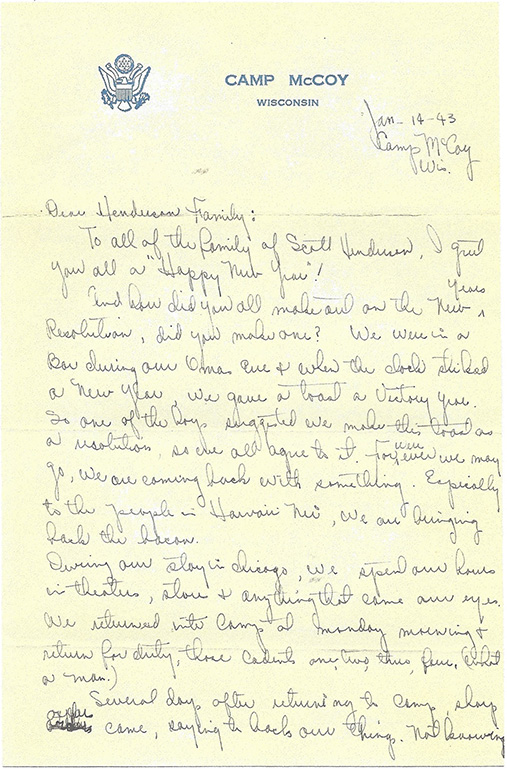 CAMP McCOY
WISCONSIN
Jan- 14-43
Camp McCoy
Wis.
Dear Henderson Family:
To all of the Family of Scott Henderson, I greet
you all a "Happy New Year"!
And how did you all make out on the New Years
Resolution, did you make one? We were in a
Bar during our Xmas Eve & when the clock striked
a New Year, we gave a toast a Victory Year.
So one of the boys suggested we make this toast as
a resolution, so we all agree to it. Forever were we may
go, we are coming back with something. Especially
to the people in Hawaii Nei, we are bringing
back the bacon.
During our stay in Chicago, we spend our hours
in theaters, stores & anything that came our eyes.
We returned into Camp at monday morning &
return for duty, those cadents one, two, three, four, (what
a man.)
Several days after returning to camp, sharp
order came, saying to pack our things. Not knowing